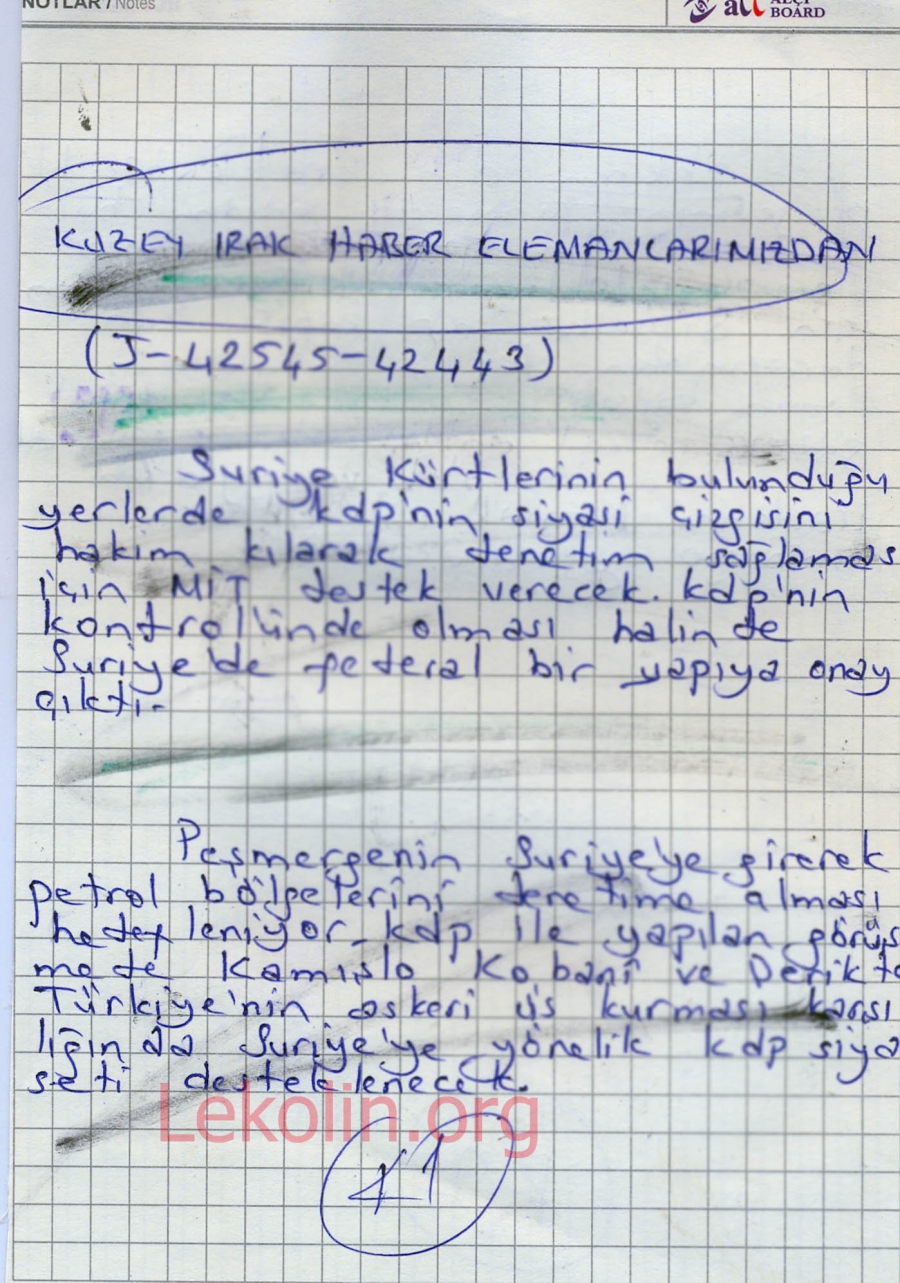 NOTLAR / Notes
all ALÇI
BOARD
KUZEY IRAK HABER ELEMANLARIMIZDAN
(J-42545-42443)
Suriye Kürtlerinin bulunduğu
yerlerde kdp'nin siyasi çizgisini
hakim kılarak denetim sağlaması
için MİT destek verecek. kdp'nin
kontrolünde olması halinde
Suriye'de federal bir yapıya onay
çıktı-
Peşmergenin Suriye'ye girerek
petrol bölgelerini denetime alması
hedefleniyor. kdp ile yapılan görüş
mede Kamışlo Kobani ve Derikte
Türkiye'nin askeri üs kurması karşı
lığında Suriye'ye yönelik kdp siya
seti desteklenecek.
Lekolin.org